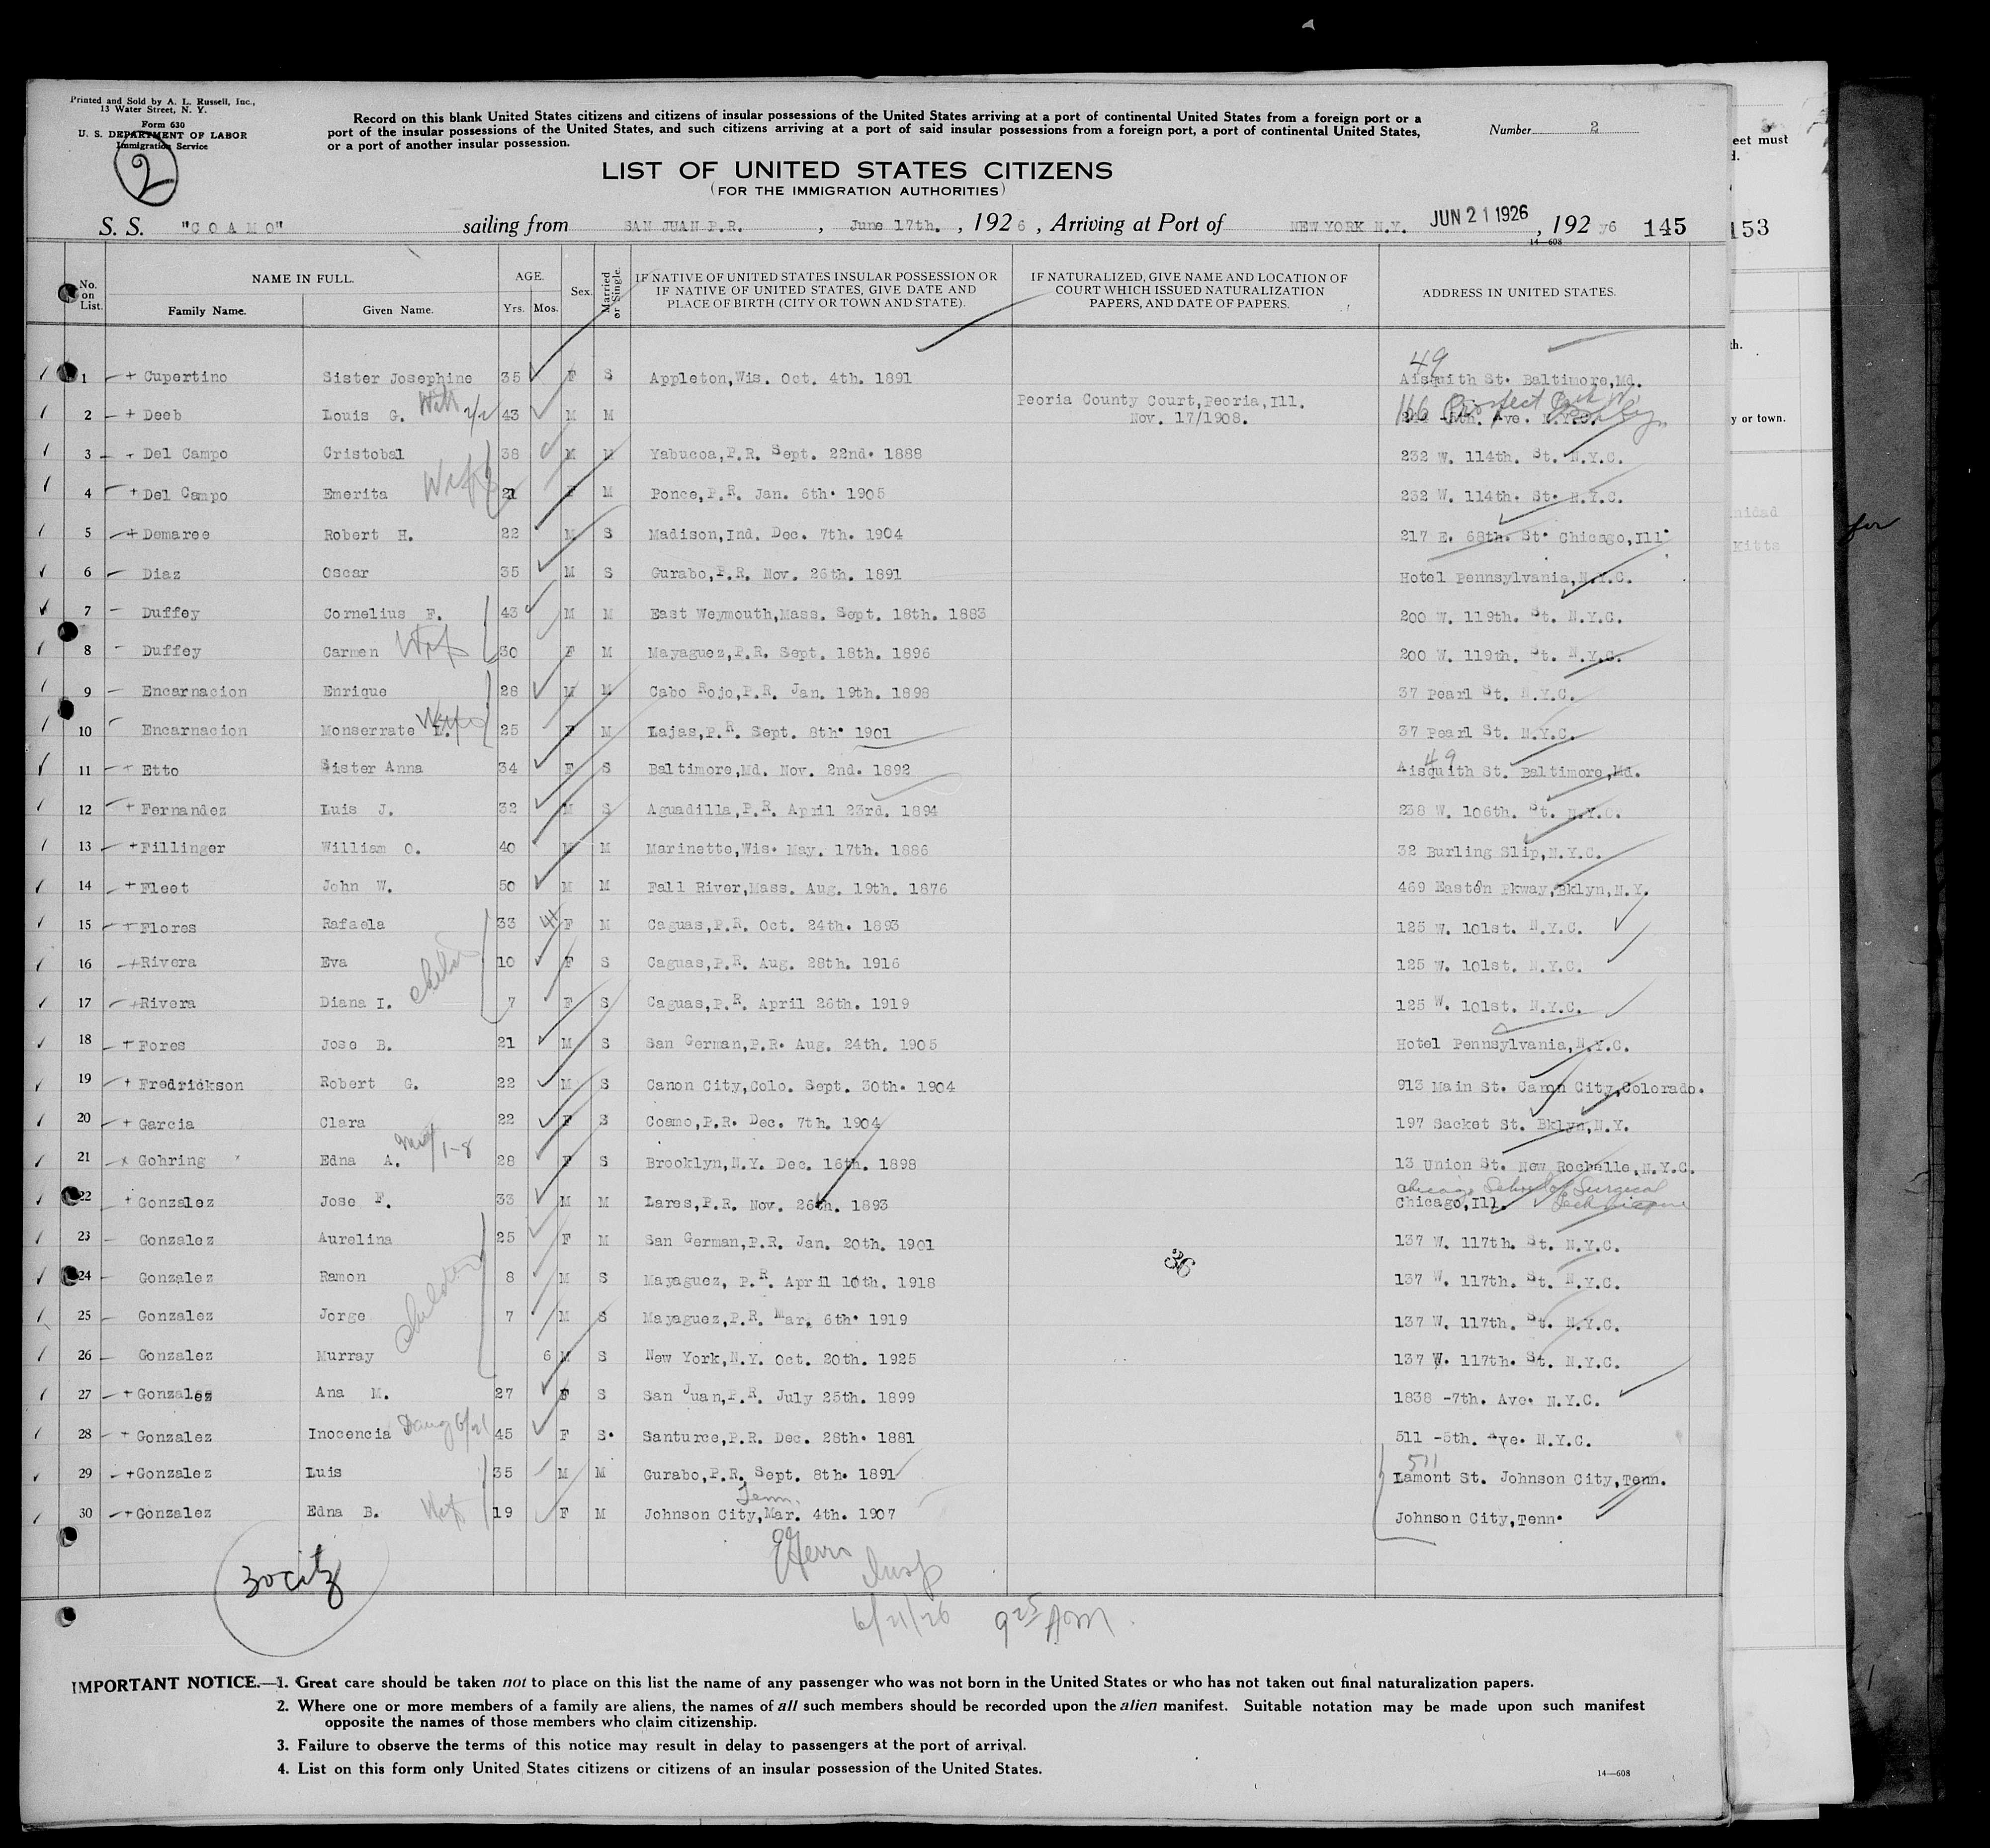 Printed and Sold by A. L. Russell, Inc.,
13 Water Street, N. Y.
Form 630
U. S. DEPARTMENT OF LABOR
Immigration Service
2
Record on this blank United States citizens and citizens of insular possessions of the United States arriving at a port of continental United States from a foreign port or a
port of the insular possessions of the United States, and such citizens arriving at a port of said insular possessions from a foreign port, a port of continental United States,
or a port of another insular possession.
Number 2
LIST OF UNITED STATES CITIZENS
(FOR THE IMMIGRATION AUTHORITIES)
S. S. "COAMO" sailing from SAN JUAN P.R. , June 17th. , 192 6 , Arriving at Port of NEW YORK N.Y. JUN 21 1926 , 192 6 145 153
14—608
No. on List. NAME IN FULL. Family Name. Given Name. AGE. Yrs. Mos. Sex. Married or Single. IF NATIVE OF UNITED STATES INSULAR POSSESSION OR IF NATIVE OF UNITED STATES, GIVE DATE AND PLACE OF BIRTH (CITY OR TOWN AND STATE). IF NATURALIZED, GIVE NAME AND LOCATION OF COURT WHICH ISSUED NATURALIZATION PAPERS, AND DATE OF PAPERS. ADDRESS IN UNITED STATES.
49
1 Cupertino Sister Josephine 35 F S Appleton,Wis. Oct. 4th. 1891 Aisquith St. Baltimore,Md.
2 Deeb Louis G. 43 M M Peoria County Court,Peoria,Ill. Nov. 17/1908. 166 Prospect Park W. 5th. Ave. N.Y.C.
3 Del Campo Cristobal 38 M M Yabucoa,P.R. Sept. 22nd. 1888 232 W. 114th. St. N.Y.C.
4 Del Campo Emerita Wife 21 F M Ponce,P.R. Jan. 6th. 1905 232 W. 114th. St. N.Y.C.
5 Demaree Robert H. 22 M S Madison,Ind. Dec. 7th. 1904 217 E. 68th. St. Chicago,Ill.
6 Diaz Oscar 35 M S Gurabo,P.R. Nov. 26th. 1891 Hotel Pennsylvania,N.Y.C.
7 Duffey Cornelius F. 43 M M East Weymouth,Mass. Sept. 18th. 1883 200 W. 119th. St. N.Y.C.
8 Duffey Carmen Wife 30 F M Mayaguez,P.R. Sept. 18th. 1896 200 W. 119th. St. N.Y.C.
9 Encarnacion Enrique 28 M M Cabo Rojo,P.R. Jan. 19th. 1898 37 Pearl St. N.Y.C.
10 Encarnacion Monserrate L. Wife 25 F M Lajas,P.R. Sept. 8th. 1901 37 Pearl St. N.Y.C.
49
11 Etto Sister Anna 34 F S Baltimore,Md. Nov. 2nd. 1892 Aisquith St. Baltimore,Md.
12 Fernandez Luis J. 32 M S Aguadilla,P.R. April 23rd. 1894 238 W. 106th. St. N.Y.C.
13 Fillinger William O. 40 M M Marinette,Wis. May. 17th. 1886 32 Burling Slip,N.Y.C.
14 Fleet John W. 50 M M Fall River,Mass. Aug. 19th. 1876 469 Easten Pkway,Bklyn,N.Y.
15 Flores Rafaela 33 F M Caguas,P.R. Oct. 24th. 1893 125 W. 101st. N.Y.C.
16 Rivera Eva 10 F S Caguas,P.R. Aug. 28th. 1916 125 W. 101st. N.Y.C.
17 Rivera Diana I. 7 F S Caguas,P.R. April 26th. 1919 125 W. 101st. N.Y.C.
18 Fores Jose B. 21 M S San German,P.R. Aug. 24th. 1905 Hotel Pennsylvania,N.Y.C.
19 Fredrickson Robert G. 22 M S Canon City,Colo. Sept. 30th. 1904 913 Main St. Canon City,Colorado.
20 Garcia Clara 22 F S Coamo,P.R. Dec. 7th. 1904 197 Sacket St. Bklyn,N.Y.
21 Gohring Edna A. 28 F S Brooklyn,N.Y. Dec. 16th. 1898 13 Union St. New Rochelle,N.Y.C.
Chicago School of Surgical
22 Gonzalez Jose F. 33 M M Lares,P.R. Nov. 26th. 1893 Chicago,Ill. Technique
23 Gonzalez Aurelina 25 F M San German,P.R. Jan. 20th. 1901 137 W. 117th. St. N.Y.C.
24 Gonzalez Ramon 8 M S Mayaguez, P.R. April 10th. 1918 36 137 W. 117th. St. N.Y.C.
25 Gonzalez Jorge children 7 M S Mayaguez,P.R. Mar. 6th. 1919 137 W. 117th. St. N.Y.C.
26 Gonzalez Murray 6 M S New York,N.Y. Oct. 20th. 1925 137 W. 117th. St. N.Y.C.
27 Gonzalez Ana M. 27 F S San Juan,P.R. July 25th. 1899 1838 -7th. Ave. N.Y.C.
28 Gonzalez Inocencia 45 F S. Santurce,P.R. Dec. 28th. 1881 511 -5th. Ave. N.Y.C.
511
29 Gonzalez Luis 35 M M Gurabo,P.R. Sept. 8th. 1891 Lamont St. Johnson City,Tenn.
Tenn.
30 Gonzalez Edna B. Wife 19 F M Johnson City,Mar. 4th. 1907 Johnson City,Tenn.
30 citz
Insp
6/21/26 9 25 AM
IMPORTANT NOTICE.—1. Great care should be taken not to place on this list the name of any passenger who was not born in the United States or who has not taken out final naturalization papers.
2. Where one or more members of a family are aliens, the names of all such members should be recorded upon the alien manifest. Suitable notation may be made upon such manifest
opposite the names of those members who claim citizenship.
3. Failure to observe the terms of this notice may result in delay to passengers at the port of arrival.
4. List on this form only United States citizens or citizens of an insular possession of the United States.
14—608
eet must
y or town.
nidad
Kitts
for